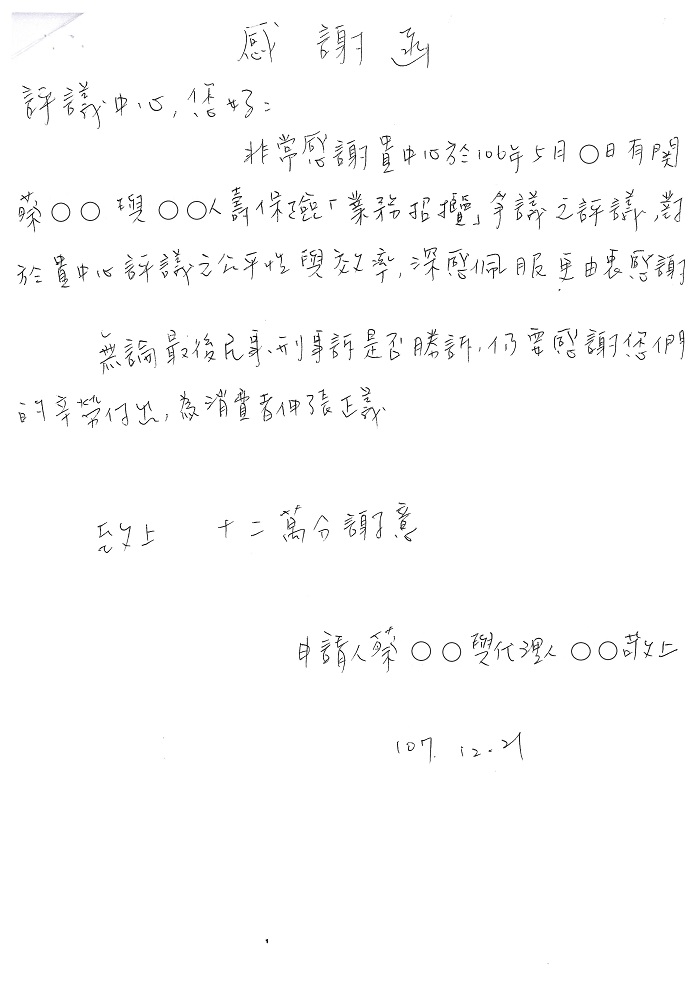 感謝函
評議中心,您好:
非常感謝貴中心於106年5月○日有関
蔡○○與○○人壽保險「業務招攬」爭議之評議,對
於貴中心評議之公平性與效率,深感佩服更由衷感謝
無論最後民事、刑事訴是否勝訴,仍要感謝您們
的辛勞付出,為消費者伸張正義
致上 十二萬分謝意
申請人蔡○○與代理人○○敬上
107.12.21